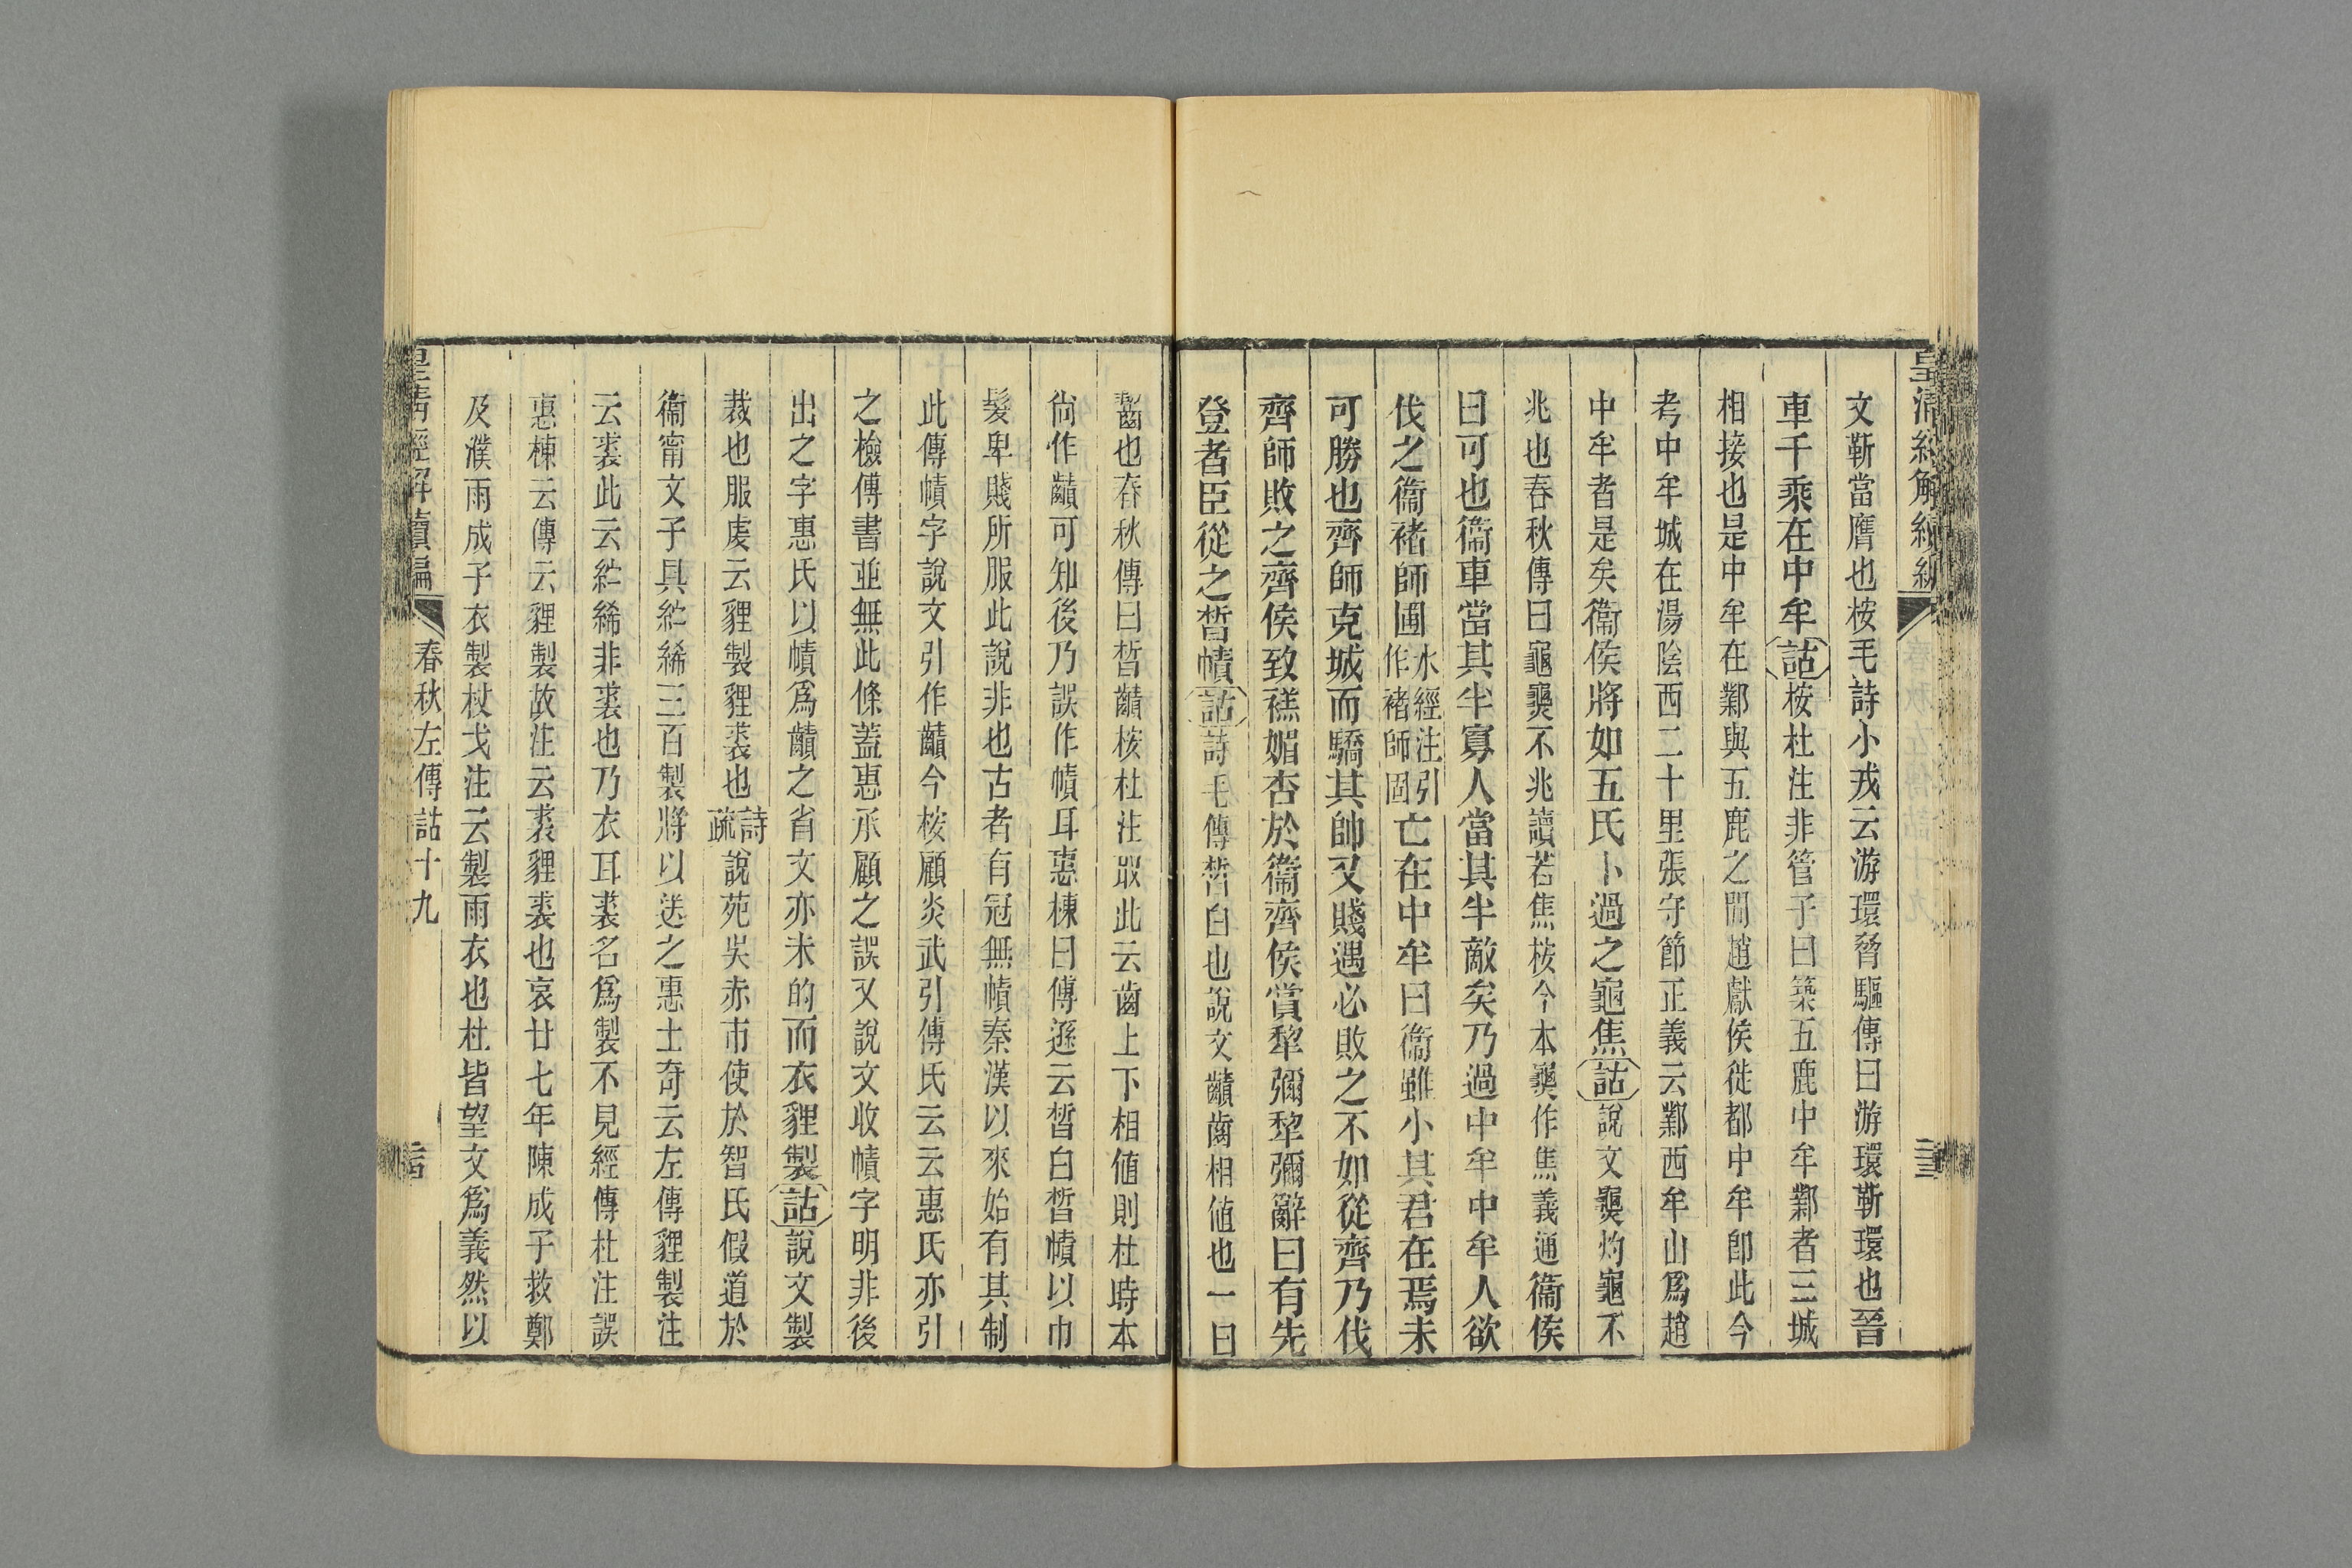 皇清經解續編
文靳當膺也桉毛詩小戎云游環脅驅傳曰游環靳環也晉
車千乘在中牟詁桉杜注非管子曰築五鹿中牟鄴者三城
相接也是中牟在鄴與五鹿之閒趙獻侯徙都中牟卽此今
考中牟城在湯陰西二十里張守節正義云鄴西牟山爲趙
中牟者是矣衞侯將如五氏卜過之龜焦詁說文𪚰灼龜不
兆也春秋傳曰龜𪚰不兆讀若焦桉今本𪚰作焦義通衞侯
曰可也衞車當其半寡人當其半敵矣乃過中牟中牟人欲
伐之衞褚師圃水經注引作褚師固亡在中牟曰衞雖小其君在焉未
可勝也齊師克城而驕其帥又賤遇必敗之不如從齊乃伐
齊師敗之齊侯致禚媚杏於衞齊侯賞犂彌犂彌辭曰有先
登者臣從之晳幘詁詩毛傳晳白也說文䶦齒相値也一曰
齧也春秋傳曰晳䶦桉杜注取此云齒上下相値則杜時本
尙作䶦可知後乃誤作幘耳惠棟曰傅遜云晳白晳幘以巾
髮卑賤所服此說非也古者有冠無幘秦漢以來始有其制
此傳幘字說文引作䶦今桉顧炎武引傅氏云云惠氏亦引
之檢傅書並無此條蓋惠承顧之誤又說文收幘字明非後
出之字惠氏以幘爲䶦之省文亦未的而衣貍製詁說文製
裁也服虔云貍製貍裘也詩疏說苑吳赤市使於智氏假道於
衞甯文子具紵絺三百製將以送之惠士奇云左傳貍製注
云裘此云紵絺非裘也乃衣耳裘名爲製不見經傳杜注誤
惠棟云傳云貍製故注云裘貍裘也哀廿七年陳成子救鄭
及濮雨成子衣製杖戈注云製雨衣也杜皆望文爲義然以
皇清經解續編
春秋左傳詁十九